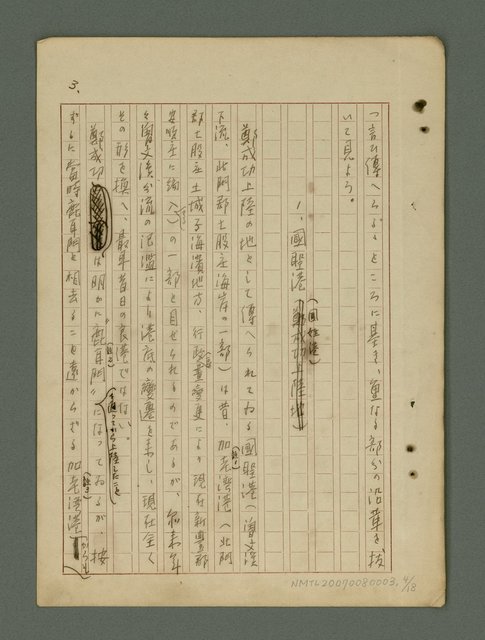 3.
つ言ひ傳へらるゝところに基き、重なる部分の沿革を拔
いて見よう。
1、國聖港 鄭成功上陸地
(國姓港)
鄭成功上陸の地として傳へられてゐる國聖港へ曾文溪
下流、北門郡七股庄海岸の一部)は昔、加老灣港へ北門
郡七股庄土城子海濱地方、行政區變更により現在新豐郡
安順庄に編入)の一部と目せられるのであるが、年
曾文溪分流の氾濫により港底の變遷を來し、現在全く
その形を換へ、最早昔日の良港ではない。
鄭成功は明かに"鹿耳門"になってゐるが、按
(を通ってから上陸したこと
ずるに當時鹿耳門と相去ること遠からざる加老灣港
からも
NMTL20070080003, 4/18